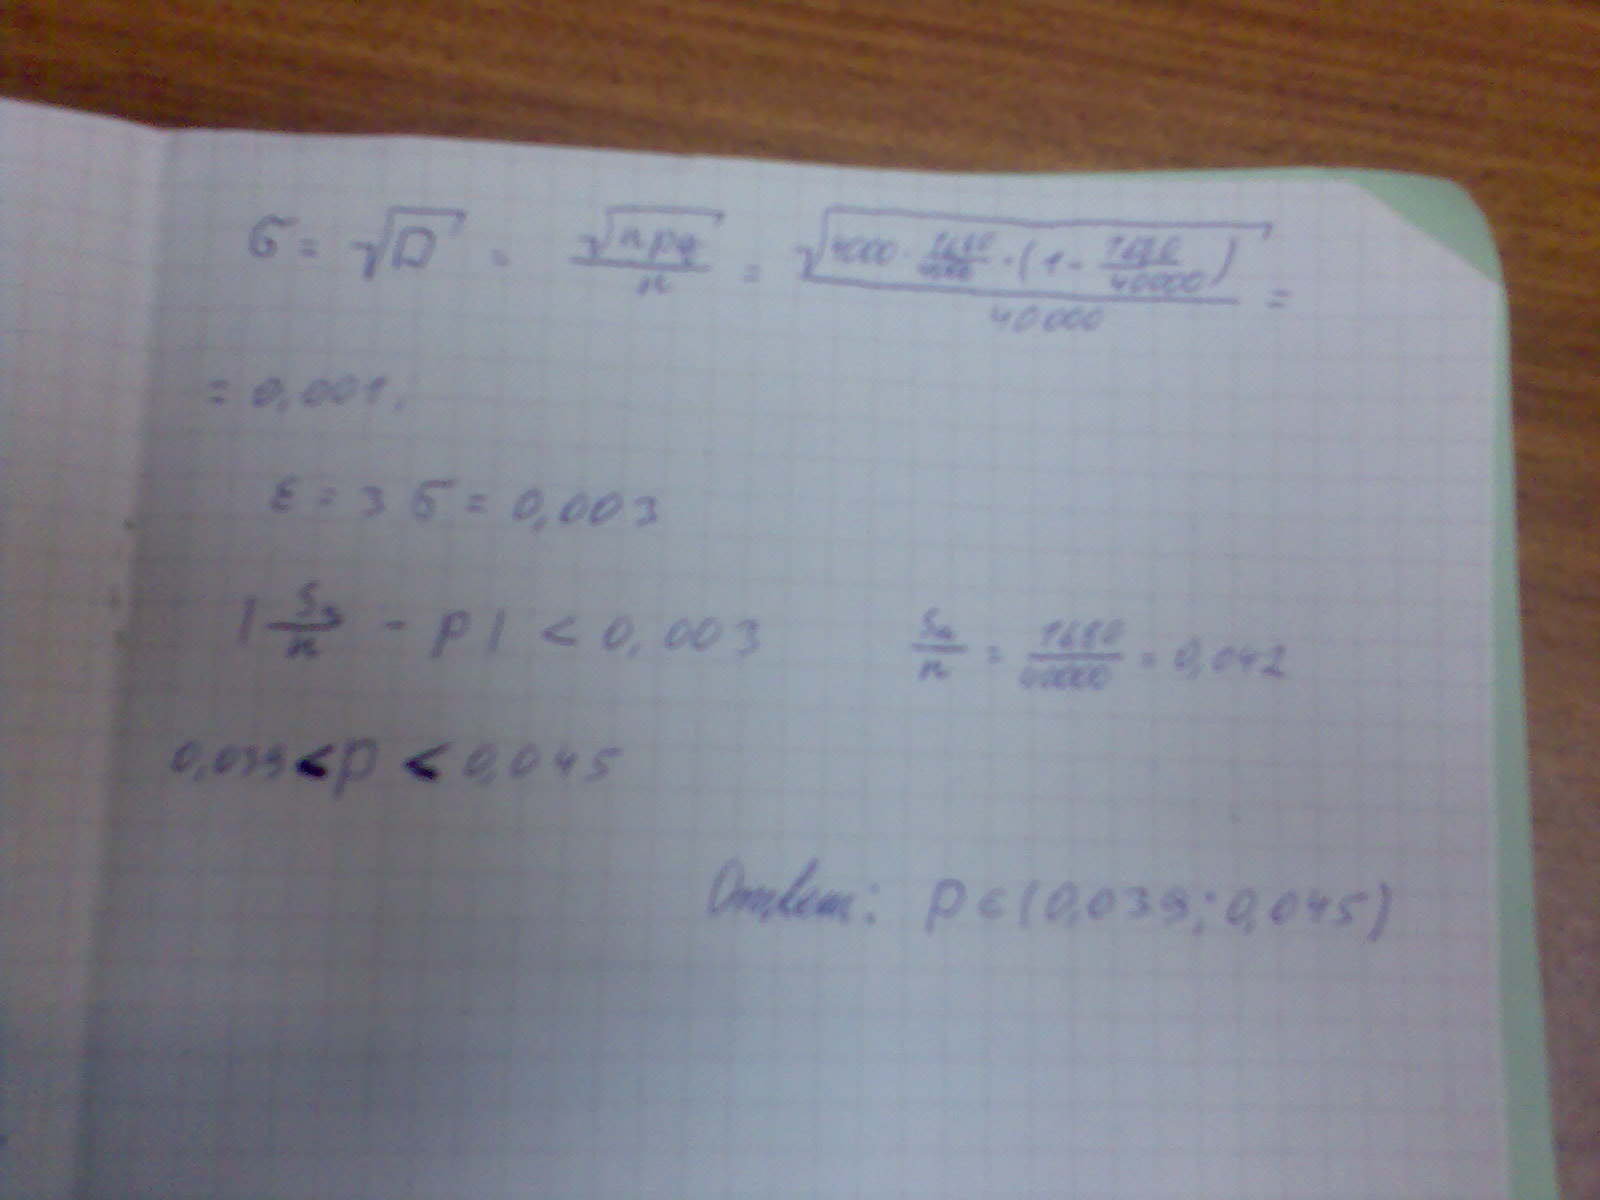 σ = √D = √npq / n = √(4000 · 1680/4000 · (1 - 1680/40000)) / 40000 =
= 0,001.
ε = 3σ = 0,003
|Sn/n - p| < 0,003 Sn/n = 1680/40000 = 0,042
0,039 < p < 0,045
Ответ: p ∈ (0,039; 0,045)